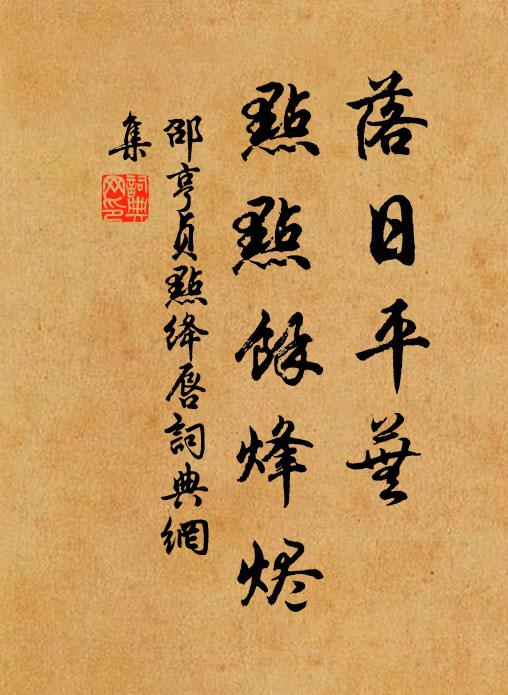 落日平蕪
點點餘烽燼
邵亨貞點絳唇詞典網
集
詞典
网印